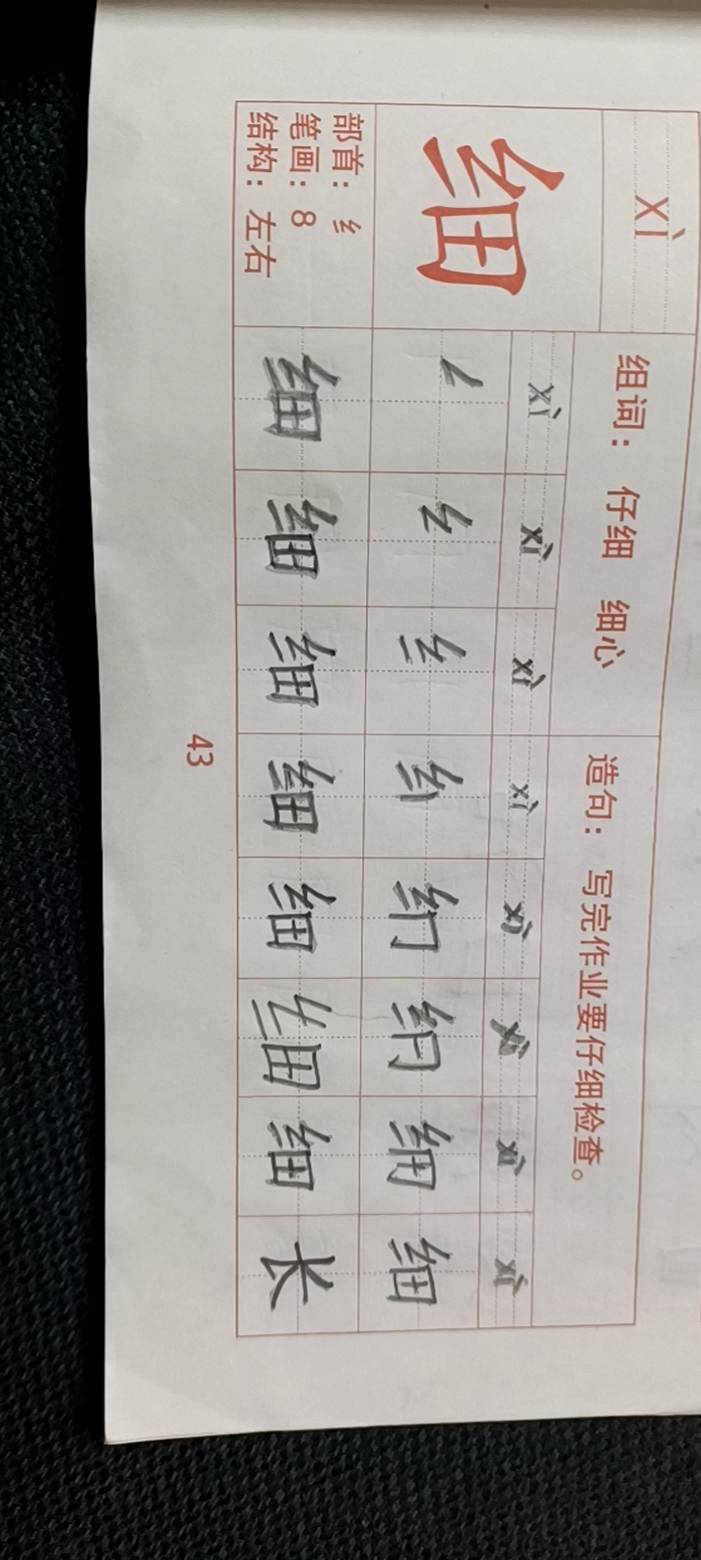 xì
细
部首：纟
笔画：8
结构：左右
组词：仔细 细心
造句：写完作业要仔细检查。
xì xì xì xì xì xì xì xì
纟 细
细 细 细 细 细 细 细 长
43